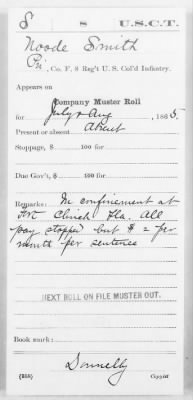 S 8 U.S.C.T.
Noode Smith
Pvt, Co. F, 8 Reg't U. S. Col'd Infantry.
Appears on
Company Muster Roll
for July & Aug, 1865.
Present or absent Absent
Stoppage, $ 100 for
Due Gov't, $ 100 for
Remarks: In confinement at
Fort Clinch Fla. All
pay stopped but $2 per
month per sentence
NEXT ROLL ON FILE MUSTER OUT.
Book mark:
Donnelly
(358) Copyist